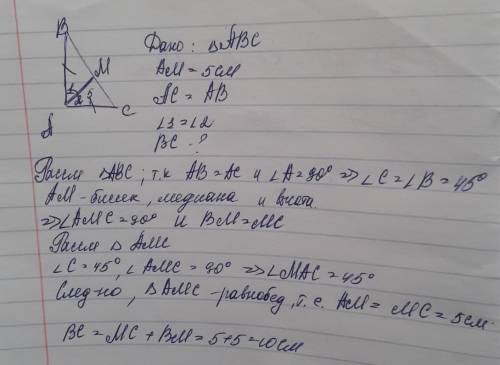 B
M
1 2
A
C
Дано: △ABC
AM = 5см
AC = AB
∠1 = ∠2
BC - ?
Рассм △ABC; т.к AB = AC и ∠A = 90° => ∠C = ∠B = 45°
AM - биссек, медиана и высота
=> ∠AMC = 90° и BM = MC
Рассм △ AMC
∠C = 45°, ∠AMC = 90° => ∠MAC = 45°
След-но, △AMC - равнобед, т.е. AM = MC = 5см.
BC = MC + BM = 5+5 = 10см